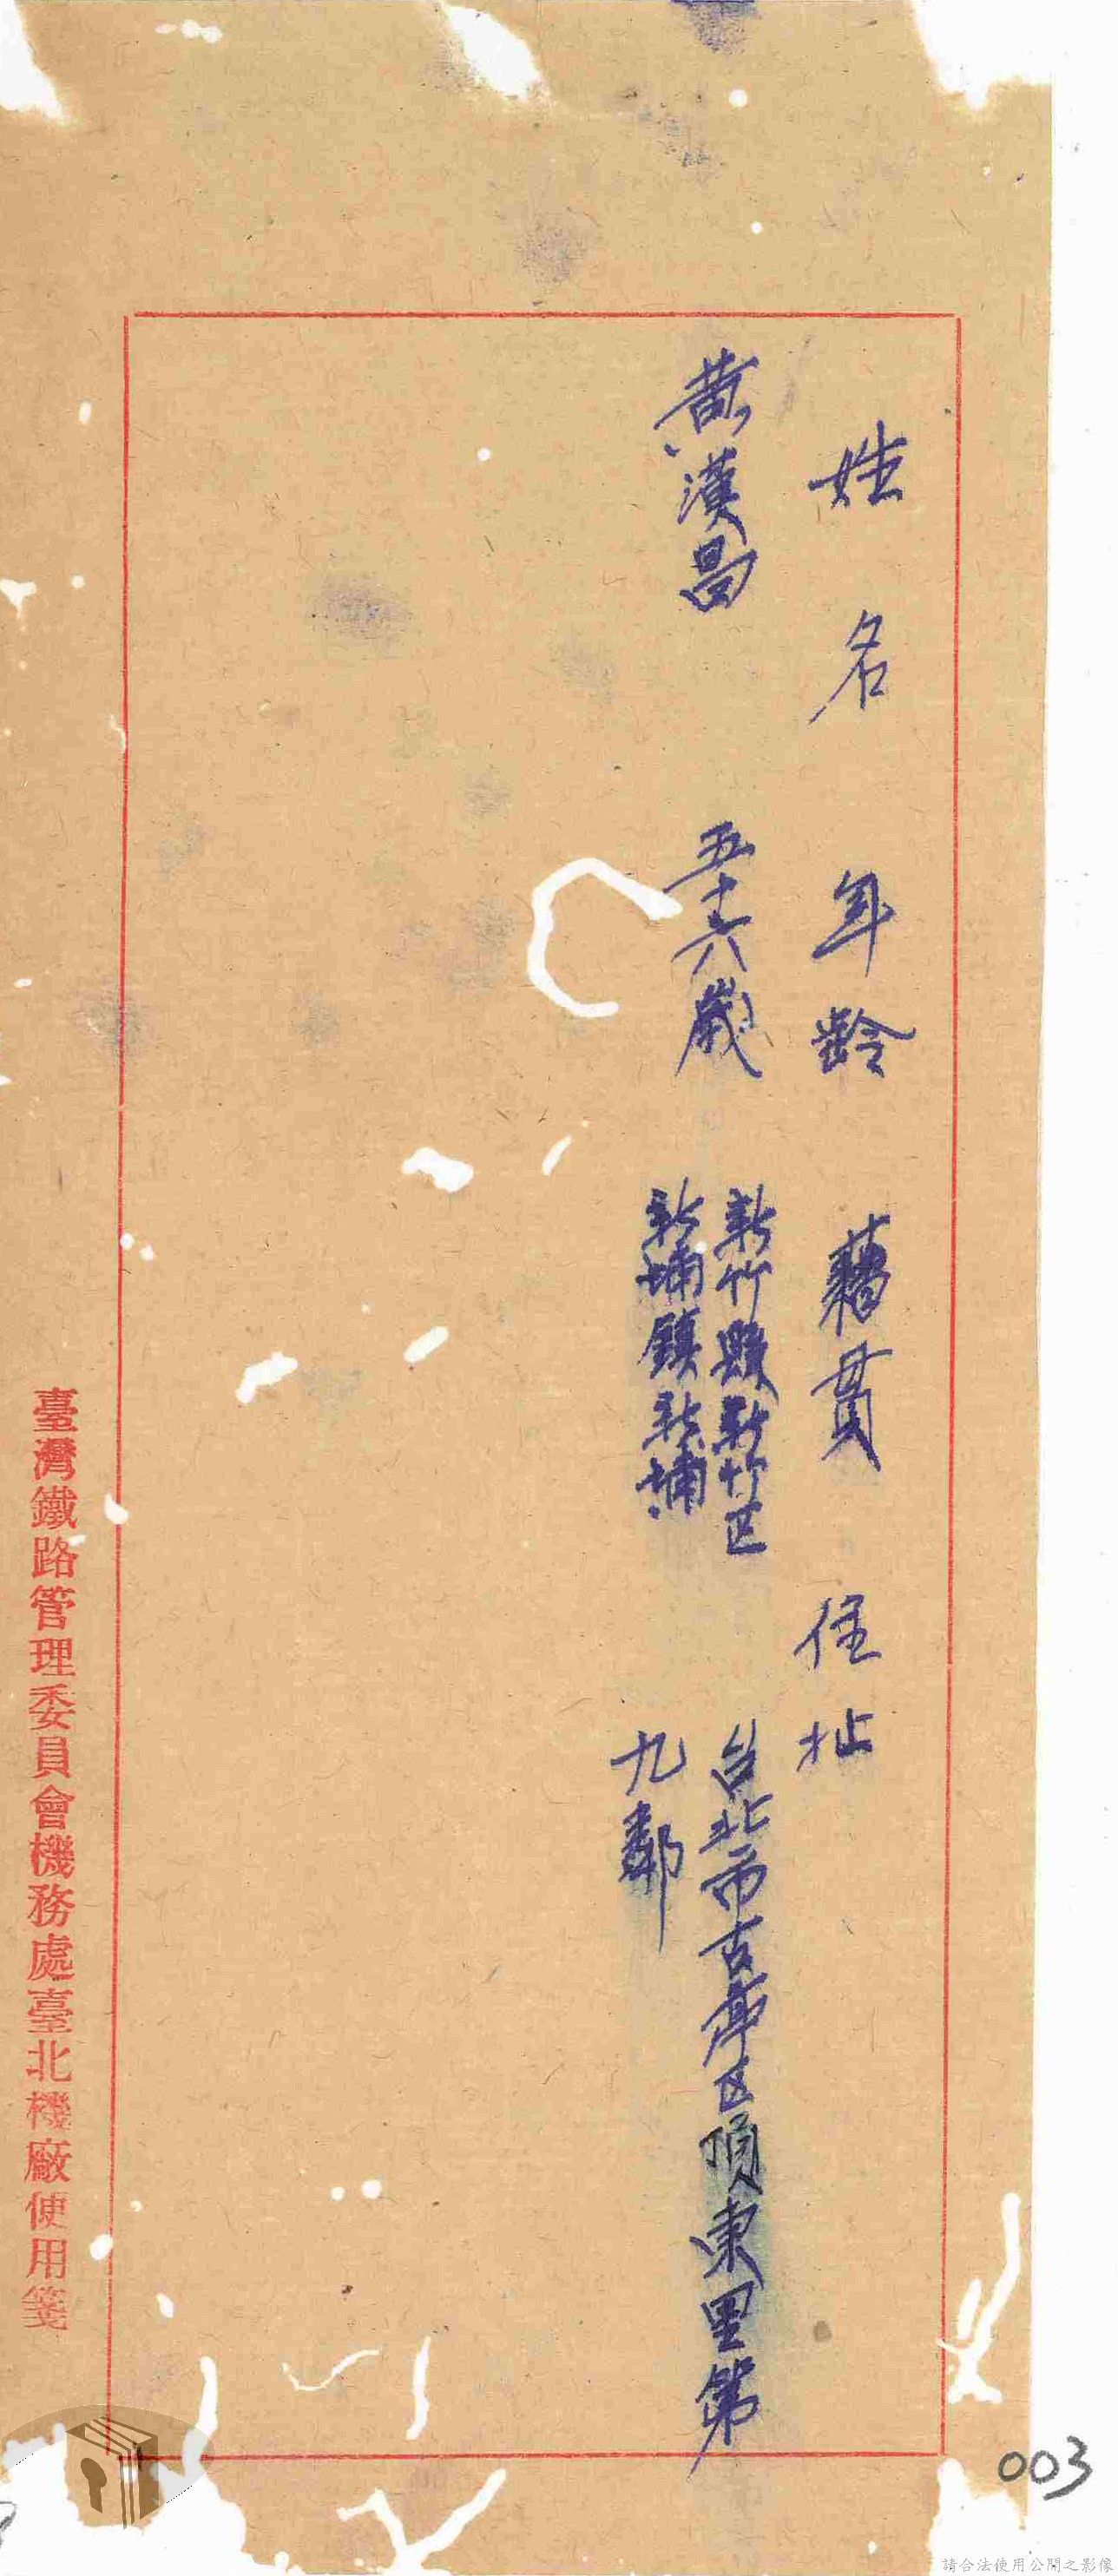 姓名　年齡　藉貫　住址
黃漢昌　五十六歲　新竹縣新竹区　台北市古亭区頂東里第
新埔鎮新埔　九鄰
臺灣鐵路管理委員會機務處臺北機廠使用箋
003
請合法使用公開之影像